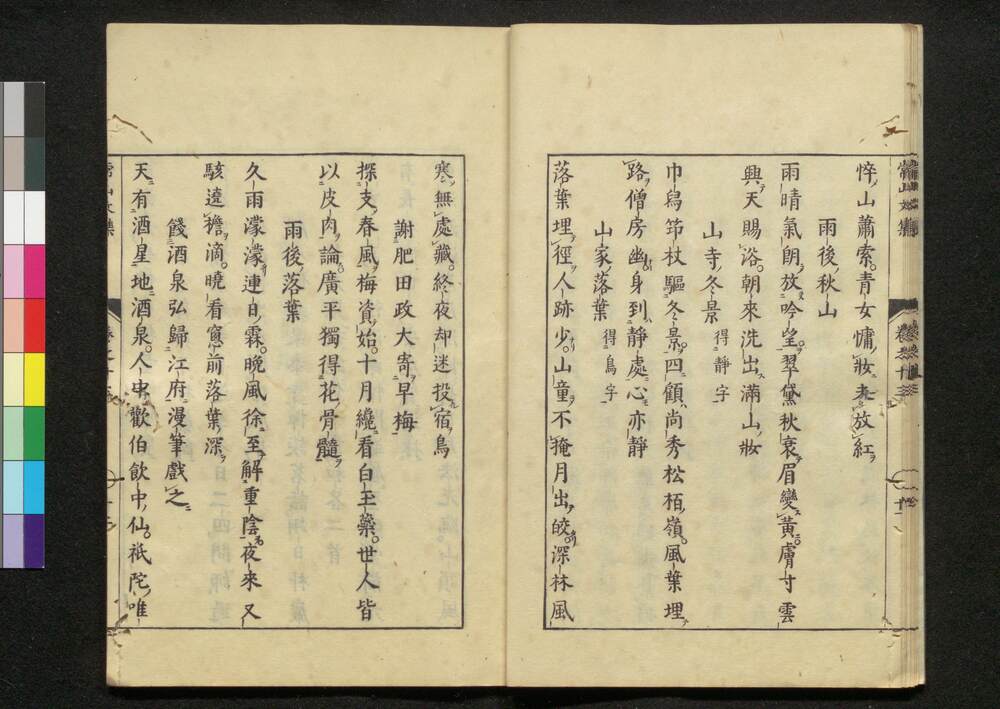 悴山蕭索青女慵妝老放紅
雨後秋山
雨晴氣朗放吟望翠黛秋衰眉變黃膚寸雲
興天賜浴朝來洗出滿山妝
山寺冬景 得靜字
巾烏笻杖驅冬景四顧尚秀松栢嶺風葉埋
路僧房幽身到靜處心亦靜
山家落葉 得鳥字
落葉埋徑人跡少山童不掩月出皎深林風
寒無處藏終夜却迷投宿鳥
謝肥田政大寄早梅
探支春風梅資始十月纔看白玉蘂世人皆
以皮肉論廣平獨得花骨髓
雨後落葉
久雨濛濛連日霖晚風徐至解重陰夜來又
駭遶檐滴曉看窓前落葉深
餞酒泉弘歸江府漫筆戲之
天有酒星地酒泉人中歡伯飲中仙祇陀唯